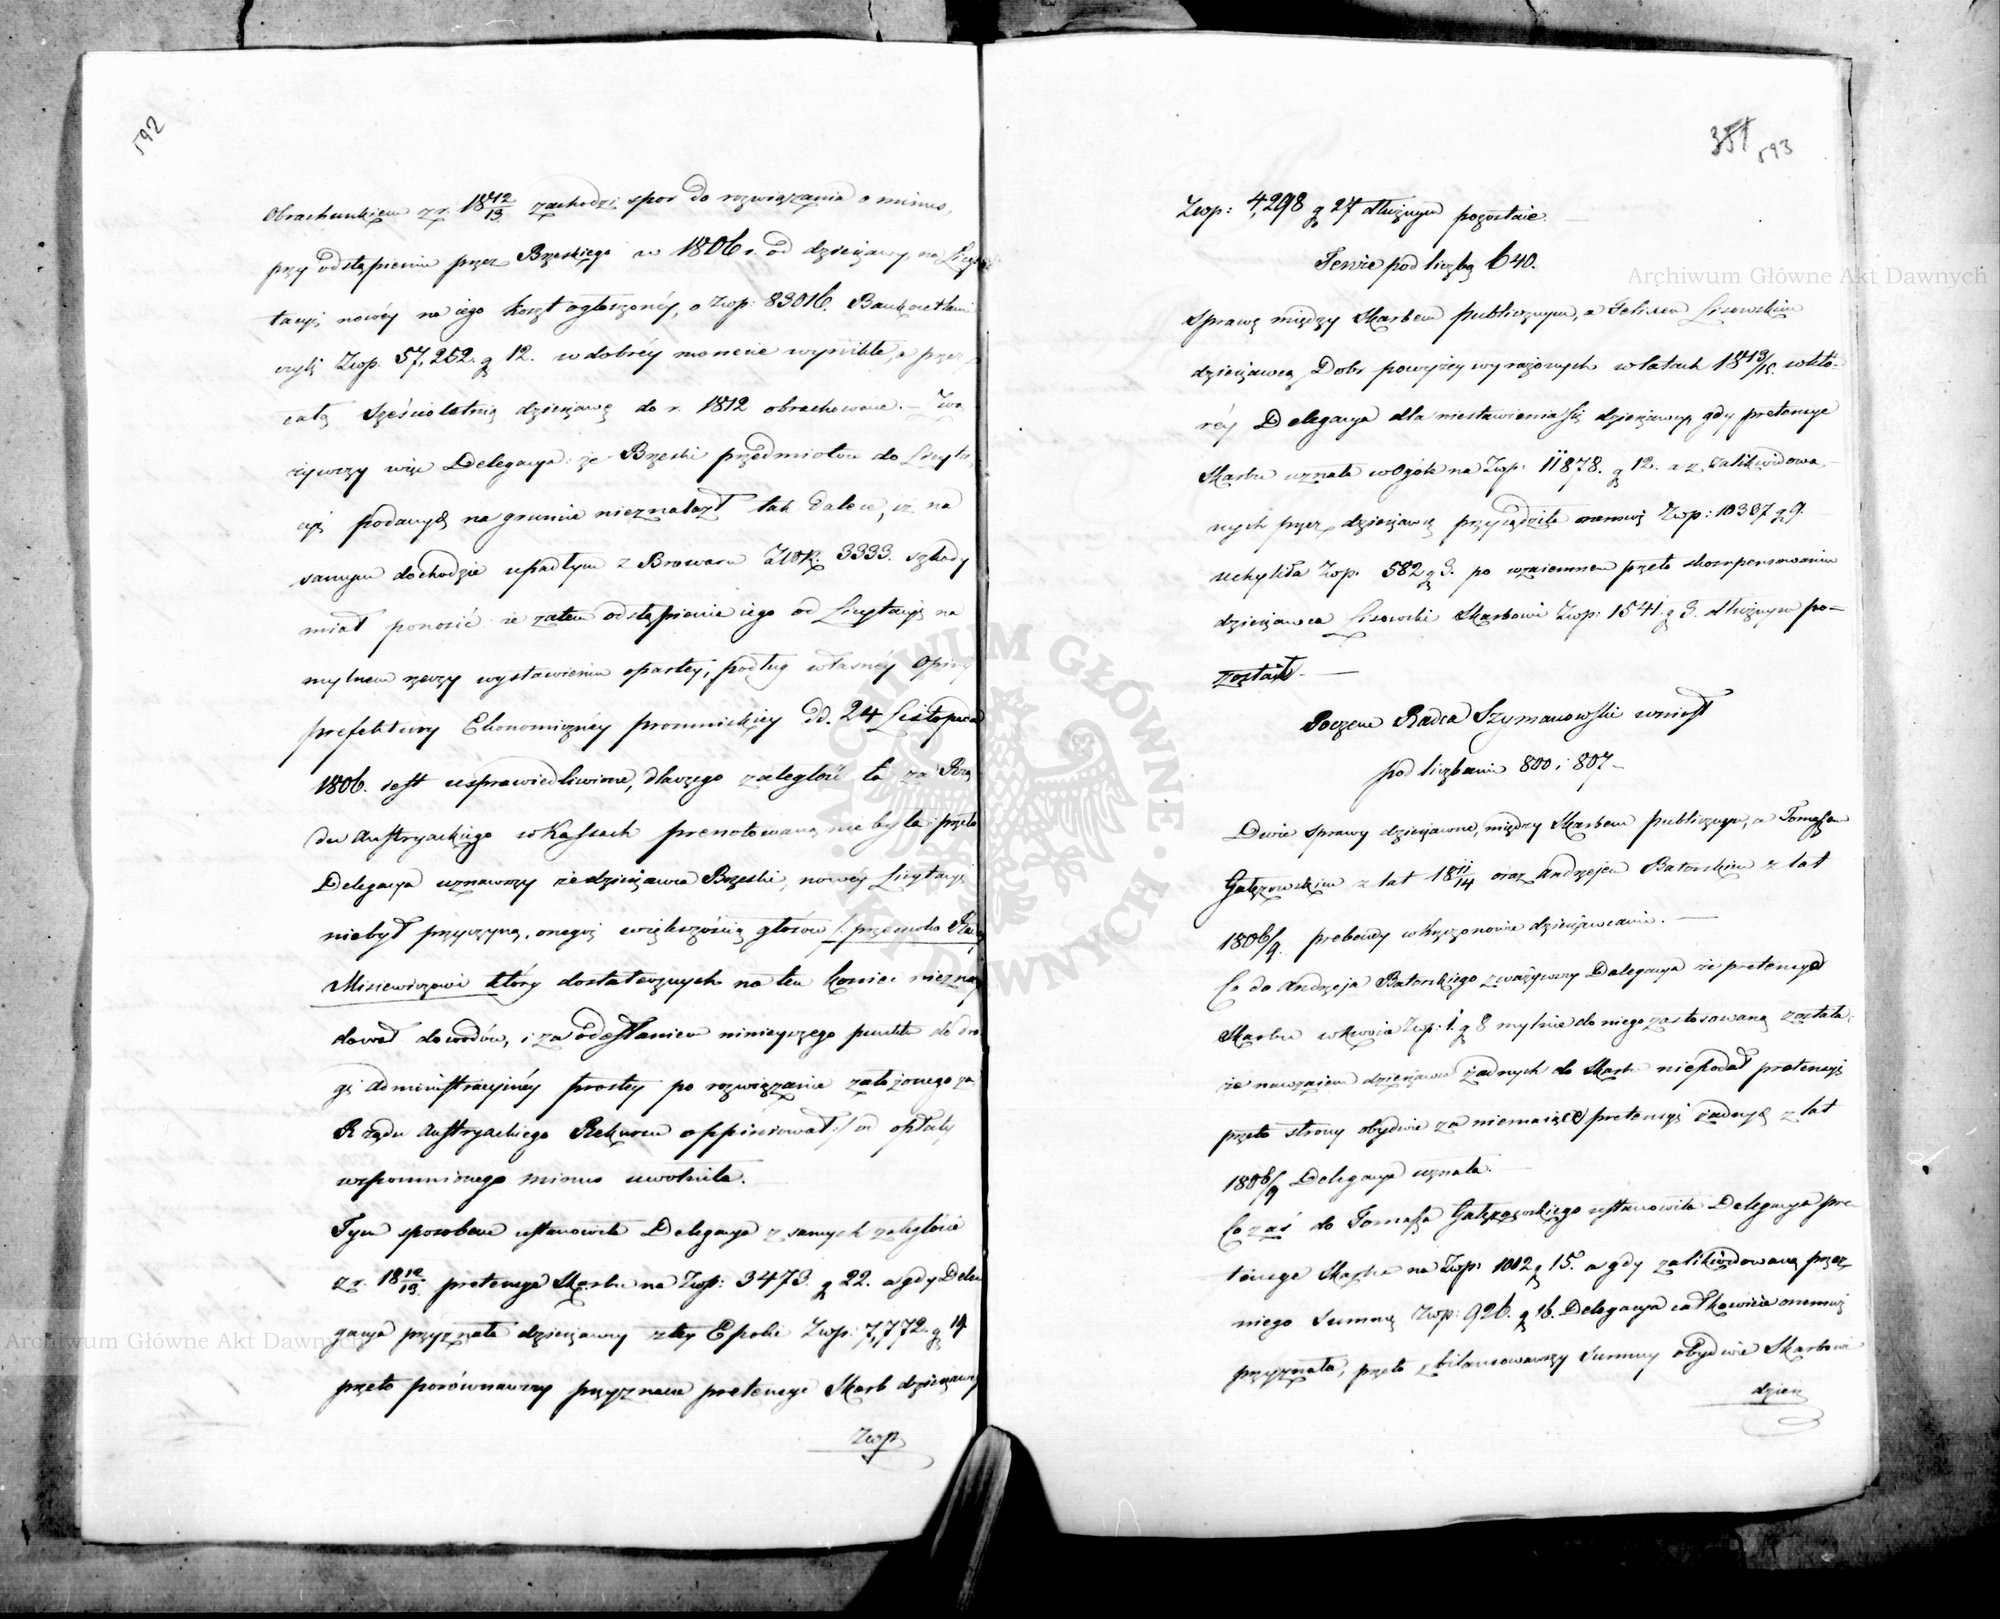 592
Obrachunkiem z r. 1812/13 zachodzi spor do rozwiązania o minus,
przy odstąpieniu przez Brzeskiego w 1806 r. od dzierżawy na Licy
tacyi nowéy na iego koszt ogłoszonéy, o Zwp: 83016. Bankocetlami
czyli Zwp. 57,252. g 12. w dobréy monecie wynikłe, a przez
całą sześcioletnią dzierżawę do r. 1812 obrachowane. — Zwa
żywszy więc Delegacya: że Brzeski przedmiotów do Licyta
cyi podanych na gruncie nieznalazł tak dalece, iż na
samym dochodzie upadłym z Browaru ZłoR. 3333. szkody
miał ponosić że zatem odstąpienie iego od Licytacyi na
mylnem rzeczy wystawieniu opartey, podług własnéy Opinii
prefektury Ekonomicznéy promnickiéy dd. 24 Listopada
1806. jest usprawiedliwione, dlaczego zaległość ta za Rzą
du Austryackiego w Kassach prenotowaną nie była: przeto
Delegacya uznawszy że dzierżawca Brzeski, nowey Licytacyi
niebył przyczyną, onegoż większością głosów /: przeciwko Radcy
Misiewiczowi który dostatecznych na ten koniec nieznay
dował dowodów, i za odesłaniem ninieyszego punktu do dro
gi administracyinéy prostey po rozwiązanie założonego za
Rządu Austryackiego Rekursu oppiniował :/ od opłaty
wspomnionego minus uwolniła.
Tym sposobem ustanowiła Delegacya z samych zaległości
z r. 1812/13. pretensye Skarbu na Zwp: 3473. g 22. a gdy Dele
gacya przyznała dzierżawcy z téy Epoki Zwp: 7,772. g 19
przeto porównawszy przyznane pretensye Skarb dzierżawcy
Zwp
351 593
Zwp: 4,298 g 27 dłużnym pozostaie. —
Tenże pod liczbą 640.
Sprawę między Skarbem publicznym, a Felixem Lisowskim
dzierżawcą Dóbr powyżey wyrażonych w latach 1813/15. w któ-
réy Delegacya dla niestawienia się dzierżawcy, gdy pretensye
Skarbu uznała w ogóle na Zwp: 11878. g 12. a z zalikwidowa-
nych przez dzierżawcę przysądziła onemuż Zwp: 10337 g 9.
uchyliła Zwp. 582 g 3. po wzaiemnem przeto skompensowaniu
dzierżawca Lisowski Skarbowi Zwp: 1541. g 3. dłużnym po-
został. —
Poczem Radca Szymanowski wniósł
pod liczbami 800 i 807 —
Dwie sprawy dzierżawne, między Skarbem publicznym, a Tomaszem
Gałęzowskim z lat 1811/14 oraz Andrzejem Batorskim z lat
1806/9. probowy w Krzczonowie dzierżawcami. —
Co do Andrzeja Batorskiego zważywszy Delegacya że pretensya
Skarbu w kwocie Zwp: 1. g 8 mylnie do niego zastosowaną została:
że nawzaiem dzierżawca żadnych do Skarbu niepodał pretensyi
przeto strony obydwie za niemaiące pretensyi żadnych z lat
1806/9 Delegacya uznała. —
Co zaś do Tomasza Gałęzowskiego ustanowiła Delegacya pre
tensye Skarbu na Zwp: 1012 g 15. a gdy zalikwidowaną przez
niego Summę Zwp: 926. g 16. Delegacya całkowicie onemuż
przyznała, przeto zbilansowawszy Summy obydwie Skarbowi
dzier
Archiwum Główne Akt Dawnych
Archiwum Główne Akt Dawnych
ARCHIWUM GŁÓWNE · AKT DAWNYCH ·